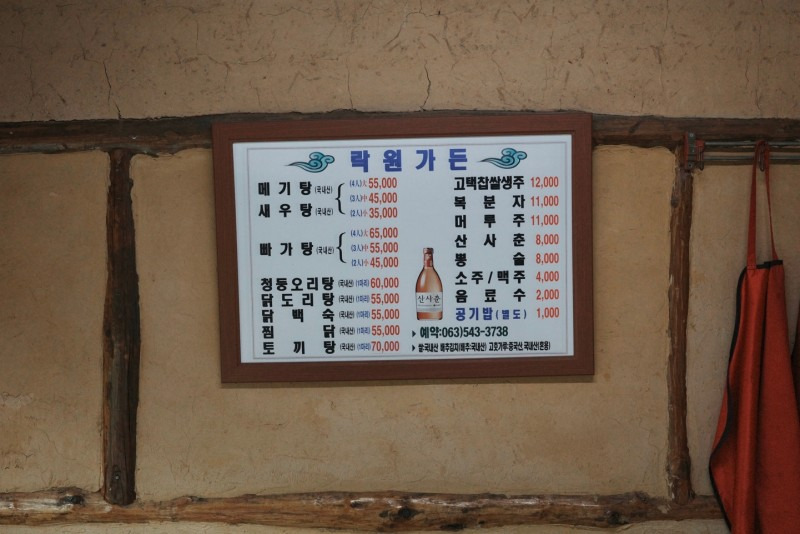 락원가든
메기탕 (국내산) (4人)大 55,000
(3人)中 45,000
새우탕 (국내산) (2人)小 35,000
빠가탕 (국내산) (4人)大 65,000
(3人)中 55,000
(2人)小 45,000
청둥오리탕 (국내산) (1마리) 60,000
닭도리탕 (국내산) (1마리) 55,000
닭백숙 (국내산) (1마리) 55,000
찜닭 (국내산) (1마리) 55,000
토끼탕 (국내산) (1마리) 70,000
고택찹쌀생주 12,000
복분자 11,000
머루주 11,000
산사춘 8,000
뽕술 8,000
소주/맥주 4,000
음료수 2,000
공기밥(별도) 1,000
산사춘
예약:063)543-3738
쌀:국내산 배추김치(배추:국내산) 고춧가루:중국산, 국내산(혼용)